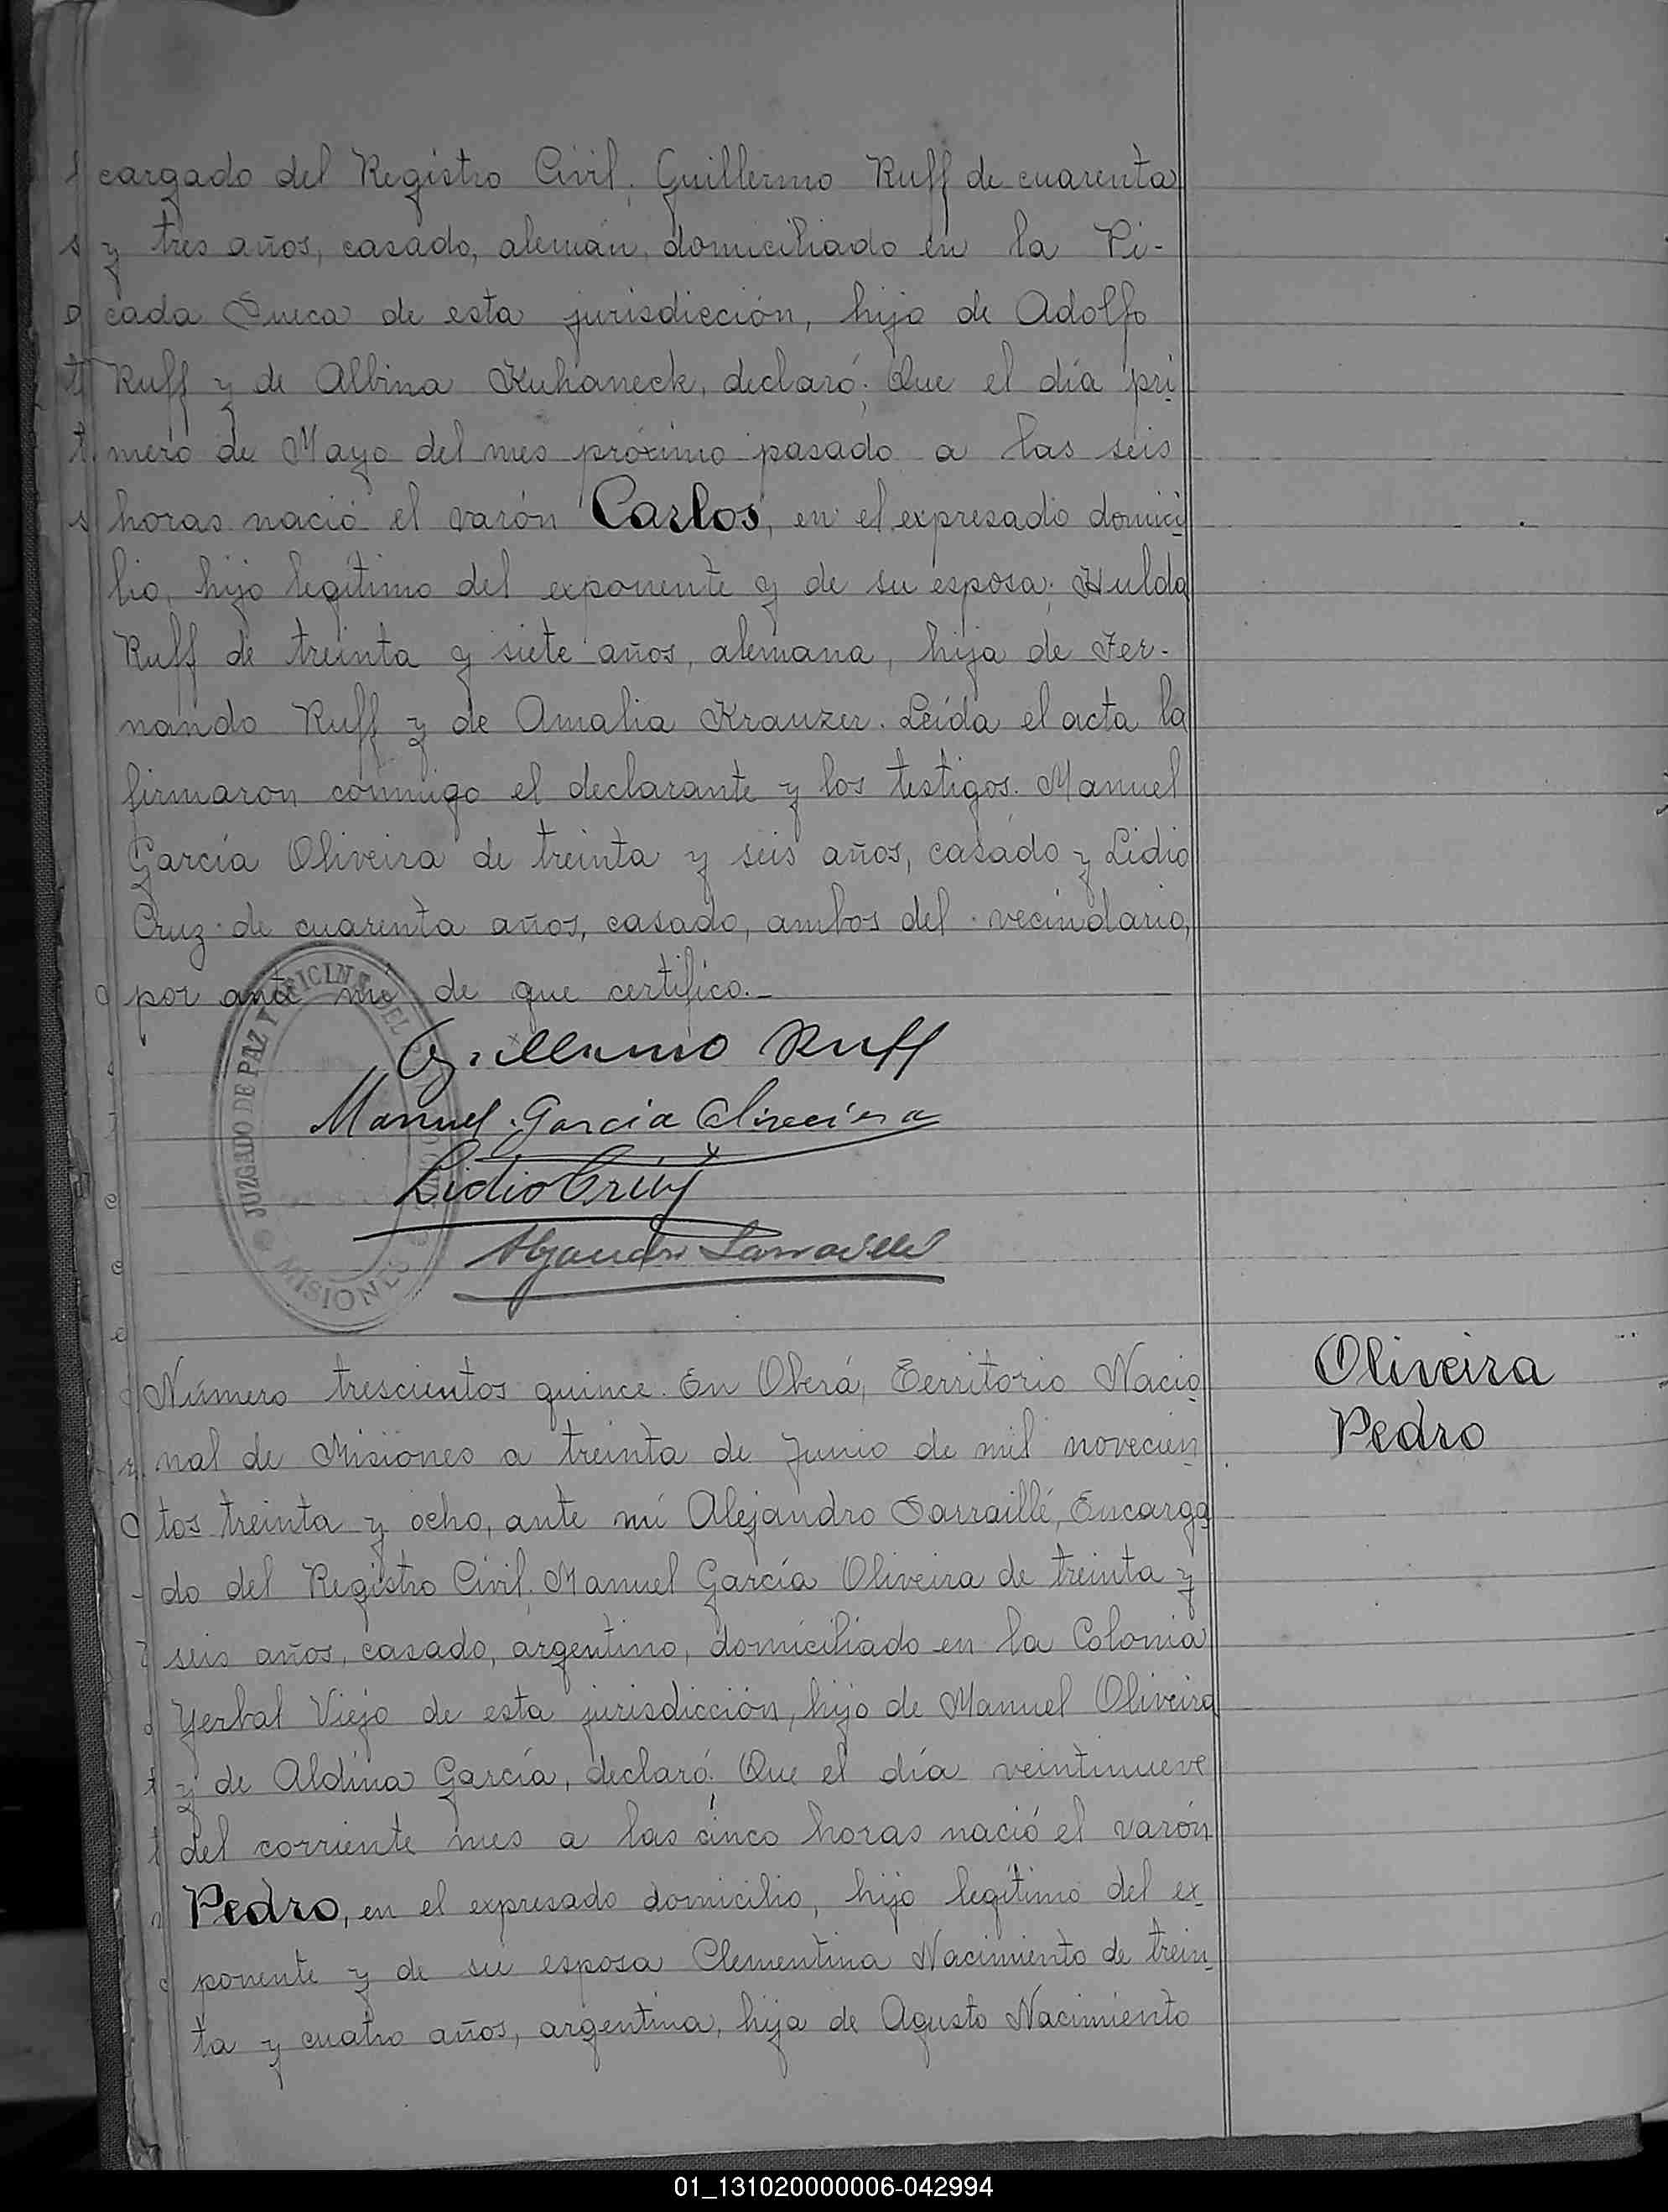 cargado del Registro Civil; Guillermo Ruff de cuarenta
y tres años, casado, alemán, domiciliado en la Pi-
cada Sueca de esta jurisdicción, hijo de Adolfo
Ruff y de Albina Kuhaneck, declaró; Que el día pri
mero de Mayo del mes próximo pasado a las seis
horas nació el varón Carlos, en el expresado domici
lio, hijo legítimo del exponente y de su esposa; Hulda
Ruff de treinta y siete años, alemana, hija de Fer-
nando Ruff y de Amalia Krauzer. Leída el acta la
firmaron conmigo el declarante y los testigos. Manuel
García Oliveira de treinta y seis años, casado y Lidio
Cruz de cuarenta años, casado, ambos del vecindario,
por ante mí de que certifico.-
JUZGADO DE PAZ Y OFICINA DEL
MISIONES
Guillermo Ruff
Manuel Garcia Oliveira
Lidio Cruz
Alejandro Sarraillé
Oliveira
Pedro
Número trescientos quince. En Oberá, Territorio Nacio
nal de Misiones a treinta de Junio de mil novecien
tos treinta y ocho, ante mí Alejandro Sarraillé, Encarga
do del Registro Civil; Manuel García Oliveira de treinta y
seis años, casado, argentino, domiciliado en la Colonia
Yerbal Viejo de esta jurisdicción, hijo de Manuel Oliveira
y de Aldina García, declaró: Que el día veintinueve
del corriente mes a las cinco horas nació el varón
Pedro, en el expresado domicilio, hijo legítimo del ex
ponente y de su esposa Clementina Nacimiento de trein
ta y cuatro años, argentina, hija de Agusto Nacimiento
01_131020000006-042994